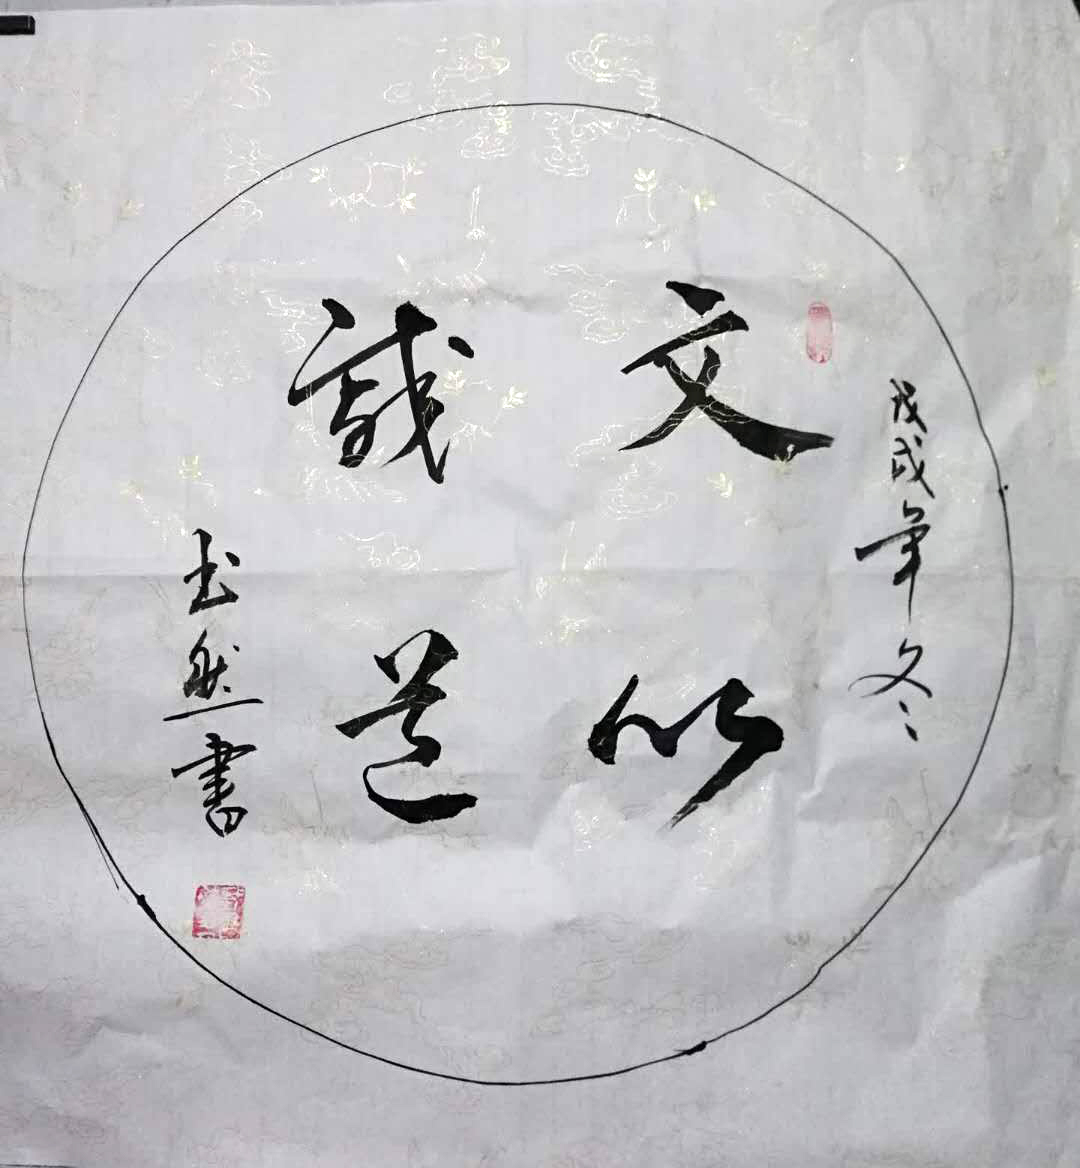 戊戌年冬
文以
載道
玉然書